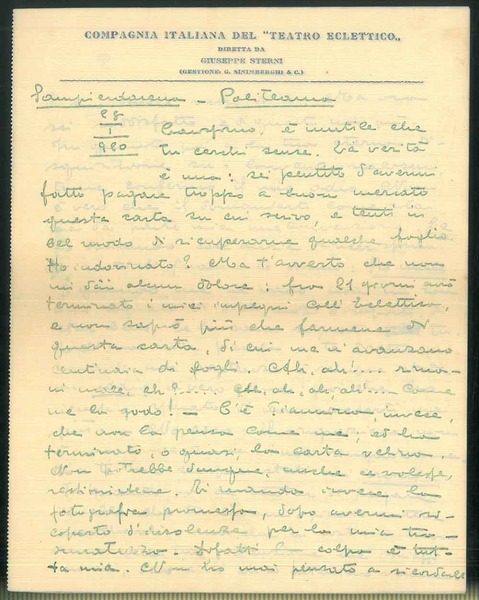 COMPAGNIA ITALIANA DEL "TEATRO ECLETTICO„
DIRETTA DA
GIUSEPPE STERNI
(GESTIONE: G. SINIMBERGHI & C.)
Sampierdarena - Politeama
28
1
920
è inutile che
tu cerchi scuse. La verità
è una: sei pentito d'avermi
fatto pagare troppo a buon mercato
questa carta su cui scrivo, e tenti in
bel modo di ricuperarne qualche foglio.
Ho indovinato? Ma t'avverto che non
mi dai alcun dolore: fra 21 giorni avrò
terminato i miei impegni coll'Eclettico,
e non saprò più che farmene di
questa carta, di cui me n'avanzano
centinaia di fogli. Ah, ah!.... rima-
ni male, eh?..... Ah, ah, ah, ah!... Come
me la godo! - C'è invece,
che non la pensa come me, ed ha
terminato, o quasi, la carta velina.
Non potrebbe dunque, anche volesse,
Ti mando invece la
fotografia promessa, dopo avermi ri-
coperto d'insolenze per la mia tra-
scuratezza. Infatti la colpa è tut-
ta mia. Non ho mai pensato a